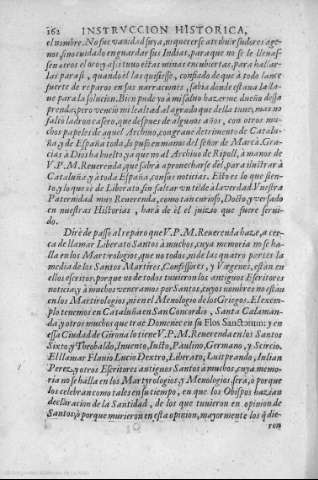 262 INSTRVCCION HISTORICA,
el nombre. No fue vanidad suya, ni quererse atribuir sudores agenos,
sino cuidado en guardar sus Indias, para que no se le llenassen
otros el oro y assi tuvo estas minas encubiertas, para hallarlas
para si, quando èl las quisiesse, confiado de que à todo lance
fuerte de reparos en sus narraciones, sabia donde estava la llave
para la solucion. Bien pude yo à mi salvo hazerme dueño dessa
prenda; pero venciò mi lealtad al agrado que della tuve, mas no
faltò ladron casero, que despues de algunos años, con otros muchos
papeles de aquel Archivo, con grave detrimento de Cataluña
y de España toda, lo puso en manos del señor de Marca. Gracias
à Dios ha buelto ya que no al Archivo de Ripoll, à manos de
V.P.M. Reverenda, que sabrà aprovecharse del, para ilustrar à
Cataluña y à toda España, con sus noticias. Esto es lo que siento,
y lo que es de Liberato sin faltar un tilde à la verdad Vuestra
Paternidad muy Reverenda, como tan curioso, Docto, y versado
en nuestras Historias, harà de èl el juizio que fuere servido.
Dirè de passo al reparo que V.P.M. Reverenda haze, a cerca
de llamar Liberato Santos à muchos, cuya memoria no se halla
en los Martirologios, que no todos, ni de las quatro partes la
media de los Santos Martires, Confessores, y Virgenes, estàn en
ellos escritos, porque no de todos tuvieron los antiguos Escritores
noticia; y à muchos veneramos por Santos, cuyos nombres no estàn
en los Martirologios, ni en el Menologio de los Griegos. El exemplo
tenemos en Cataluña en San Concordio, Santa Calamanda,
y otros muchos que trae Domenec en su Flos Sanctorum: y en
essa Ciudad de Girona lo tiene V.P.M. Reverenda en los Santos
Sixto, y Theobaldo, Invento, Iusto, Paulino, Germano, y Scircio.
El llamar Flavio Lucio Dextro, Liberato, Luitprando, Iulian
Perez, y otros Escritores antiguos Santos à muchos, cuya memoria
no se halla en los Martyrologios, y Menologios, serà, ò porque
se celebran como tales en su tiempo, en que los Obispos hazian
declaracion de la Santidad, de los que tuvieron en opinion de
Santos; ò porque murieron en esta opinion, mayormente los q̃ die-
ron